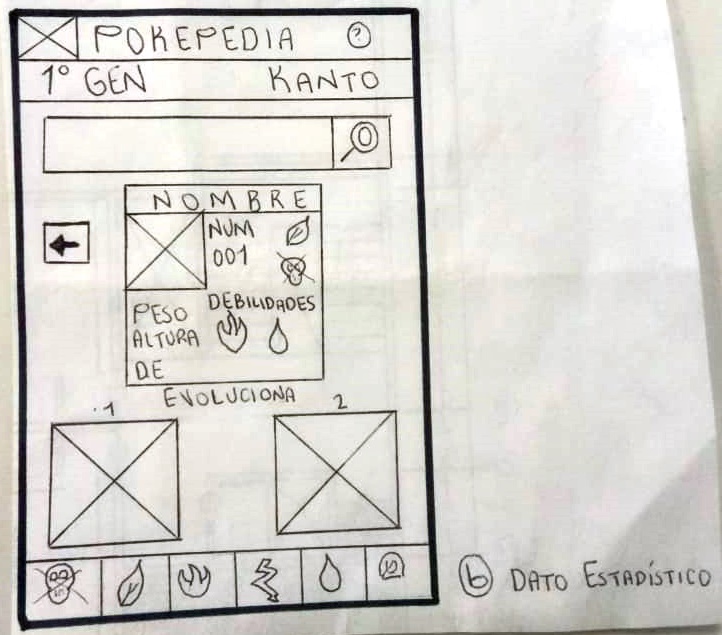 POKEPEDIA ?
1° GEN KANTO
NOMBRE
NUM
001
DEBILIDADES
PESO
ALTURA
DE
EVOLUCIONA
1 2
b DATO ESTADÍSTICO